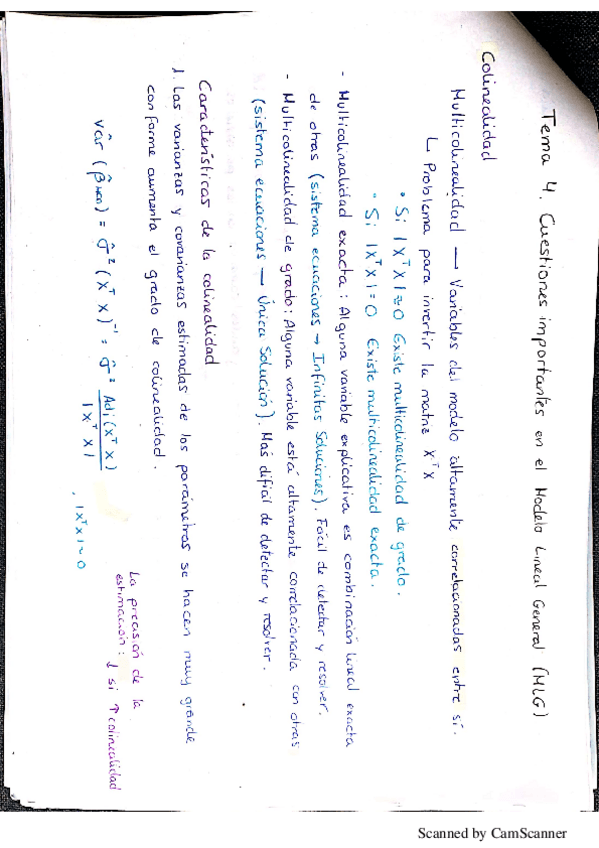 Tema 4. Cuestiones importantes en el Modelo Lineal General (MLG)
Colinealidad
Multicolinealidad → Variables del modelo altamente correlacionadas entre sí.
↳ Problema para invertir la matriz XᵀX
• Si |XᵀX| ≈ 0 Existe multicolinealidad de grado.
• Si |XᵀX| = 0 Existe multicolinealidad exacta.
- Multicolinealidad exacta: Alguna variable explicativa es combinación lineal exacta
de otras (sistema ecuaciones → Infinitas Soluciones). Fácil de detectar y resolver.
- Multicolinealidad de grado: Alguna variable está altamente correlacionada con otras
(sistema ecuaciones → Única Solución). Más difícil de detectar y resolver.
Características de la colinealidad
1. Las varianzas y covarianzas estimadas de los parámetros se hacen muy grande
conforme aumenta el grado de colinealidad.
vâr (β̂MCO) = σ̂² (XᵀX)⁻¹ = σ̂² Adj (XᵀX) / |XᵀX| , |XᵀX| ~ 0
La precisión de la
estimación: ↓ si ↑ colinealidad
Scanned by CamScanner